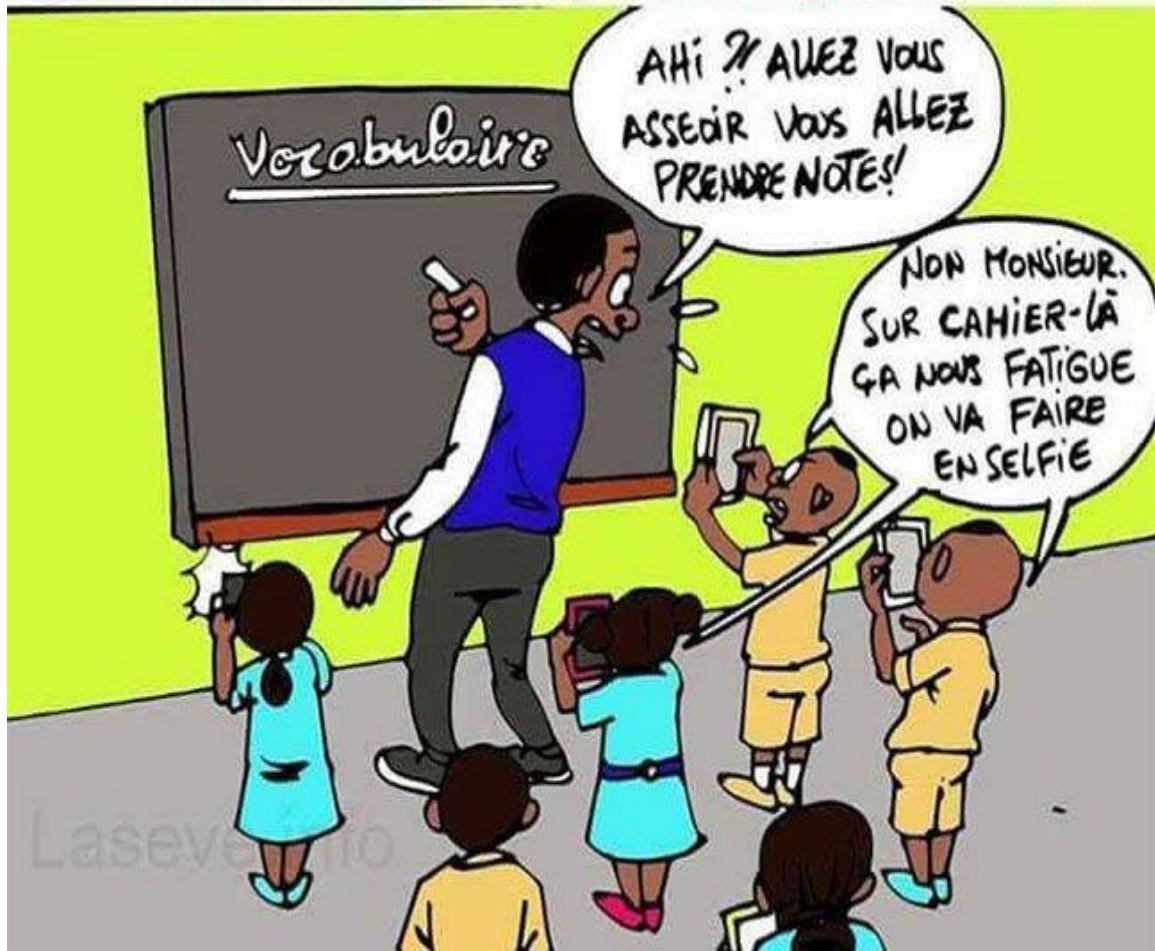 Vocabulaire
AHI ?! ALLEZ VOUS
ASSEOIR VOUS ALLEZ
PRENDRE NOTES!
NON MONSIEUR.
SUR CAHIER-LÀ
ÇA NOUS FATIGUE
ON VA FAIRE
EN SELFIE